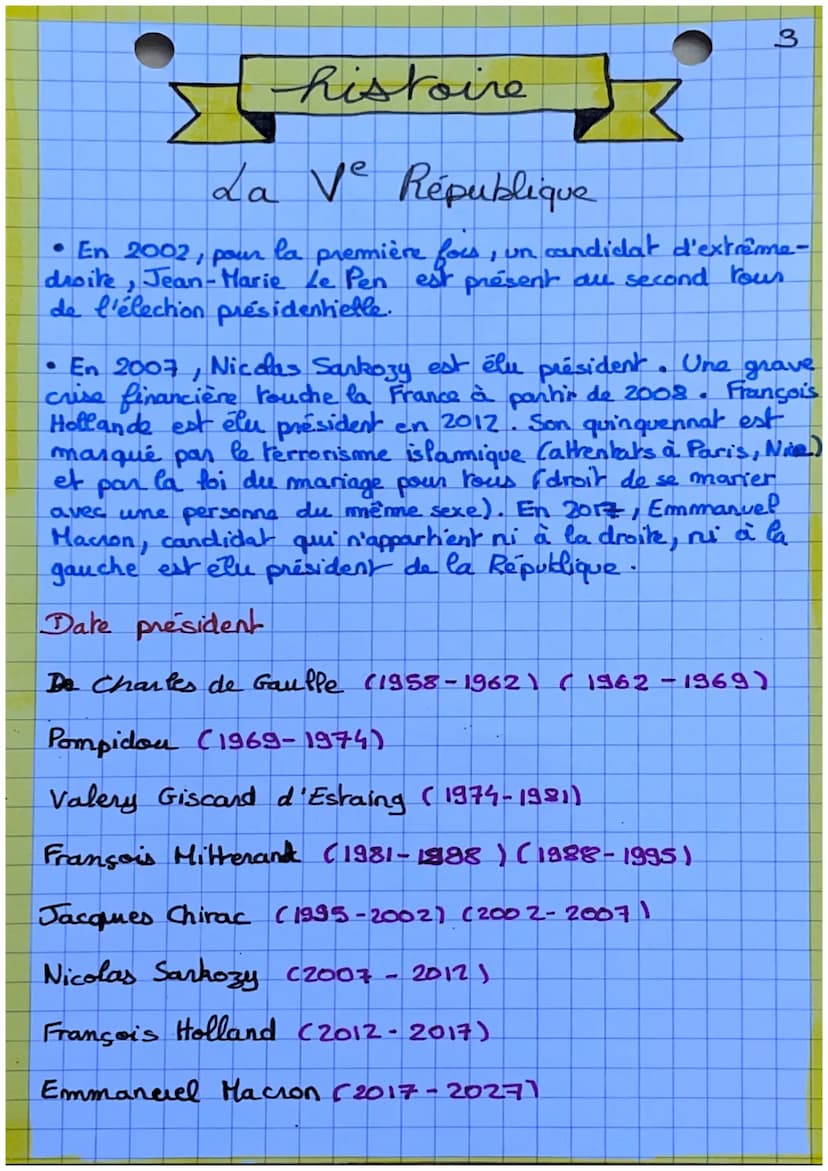 3
histoire
La Ve République
• En 2002, pour la première fois, un candidat d'extrême-
droite, Jean-Marie Le Pen est présent au second tour
de l'élection présidentielle.
• En 2007, Nicolas Sarkozy est élu président. Une grave
crise financière touche la France à partir de 2008. François
Hollande est élu président en 2012. Son quinquennat est
marqué par le terrorisme islamique (attentats à Paris, Nice)
et par la loi du mariage pour tous (droit de se marier
avec une personne du même sexe). En 2017, Emmanuel
Macron, candidat qui n'appartient ni à la droite, ni à la
gauche est élu président de la République.
Date président
Charles de Gaulle (1958-1962) (1962-1969)
Pompidou (1969-1974)
Valery Giscard d'Estaing (1974-1981)
François Mitterant (1981-1988) (1988-1995)
Jacques Chirac (1995-2002) (2002-2007)
Nicolas Sarkozy (2007-2012)
François Holland (2012-2017)
Emmanuel Macron (2017-2027)